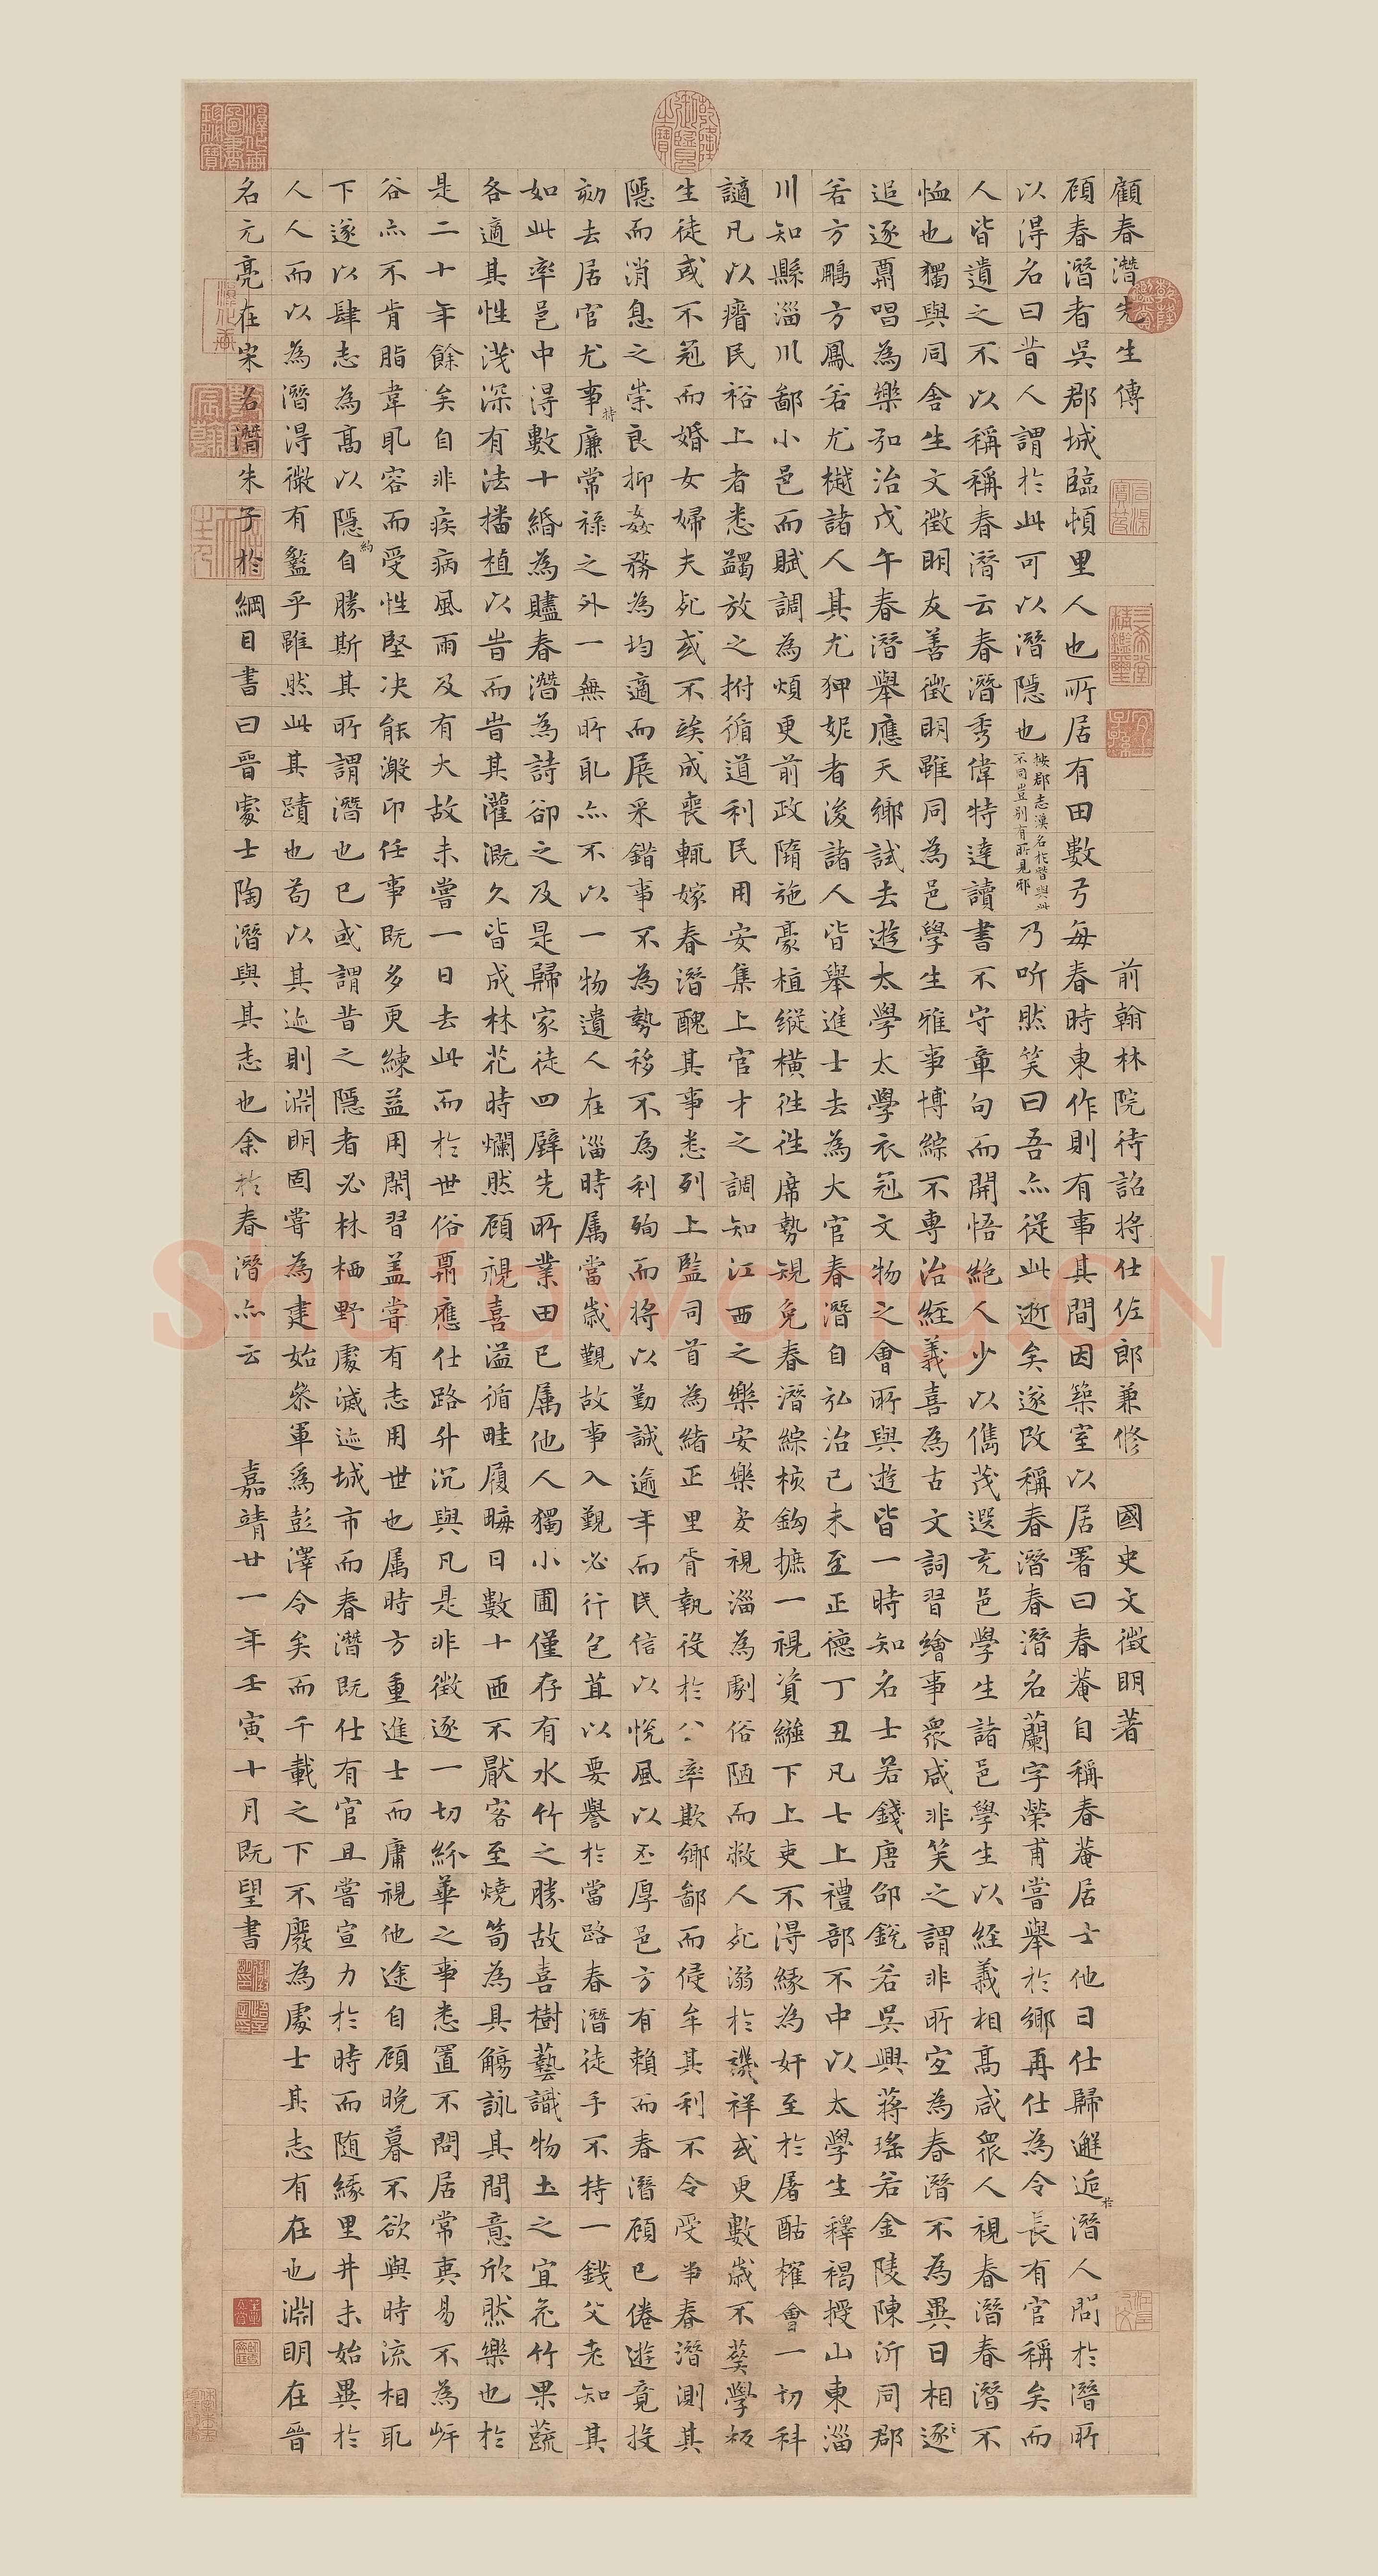 顧春潛先生傳 前翰林院待詔將仕佐郎兼修 國史文徵明著
顧春潛者吳郡城臨頓里人也所居有田數弓每春時東作則有事其間因築室以居署曰春菴自稱春菴居士他日仕歸邂逅於潛人問於潛所
以得名曰昔人謂於此可以潛隱也按郡志漢名於朁與此不同豈別有所見邪乃听然笑曰吾亦從此逝矣遂改稱春潛春潛名蘭字榮甫嘗舉於鄉再仕為令長有官稱矣而
人皆遺之不以稱稱春潛云春潛秀偉特達讀書不守章句而開悟絕人少以儁茂選充邑學生諸邑學生以經義相高咸眾人視春潛春潛不
恤也獨與同舍生文徵明友善徵明雖同為邑學生雅事博綜不專治經義喜為古文詞習繪事眾咸非笑之謂非所宜為春潛不為異日相逐
追逐鬻唱為樂弘治戊午春潛舉應天鄉試去遊太學太學衣冠文物之會所與遊皆一時知名士若錢唐邵銳若吳興蔣瑤若金陵陳沂同郡
若方鵬方鳳若尤樾諸人其尤狎妮者後諸人皆舉進士去為大官春潛自弘治己未至正德丁丑凡七上禮部不中以太學生釋褐授山東淄
川知縣淄川鄙小邑而賦調為煩更前政隋施豪植縱橫往往席勢規免春潛綜核鉤摭一視資下上吏不得緣為奸至於屠酤榷會一切科
謫凡以瘠民裕上者悉蠲放之拊循道利民用安集上官才之調知江西之樂安樂安視淄為劇俗陋而敝人死溺於禨祥或更數歲不葬學校
生徒或不冠而婚女婦夫死或不竢成喪輒嫁春潛醜其事悉列上監司首為緒正里胥執役於公率欺鄉鄙而侵牟其利不令受事春潛測其
隱而消息之崇良抑姦務為均適而展采錯事不為勢移不為利殉而將以勤誠逾年而民信以悅風以丕厚邑方有賴而春潛顧已倦遊竟投
劾去居官尤事持廉常祿之外一無所取亦不以一物遺人在淄時属當歲覲故事入覲必行包苴以要譽於當路春潛徒手不持一錢父老知其
如此率邑中得數十緡為贐春潛為詩卻之及是歸家徒四壁先所業田已属他人獨小圃僅存有水竹之勝故喜樹藝識物土之宜花竹果蔬
各適其性淺深有法播植以旹而旹其灌溉久皆成林花時爛然顧視喜溢循畦履畮日數十匝不厭客至燒筍為具觴詠其間意欣然樂也於
是二十年餘矣自非疾病風雨及有大故未嘗一日去此而於世俗鬻應仕路升沉與凡是非徵逐一切紛華之事悉置不問居常夷易不為岸
谷亦不肯脂韋取容而受性堅决能澂印任事既多更練益用閑習盖嘗有志用世也属時方重進士而庸視他途自顧晚暮不欲與時流相取
下遂以肆志為高以隱約自勝斯其所謂潛也已或謂昔之隱者必林栖野處滅迹城市而春潛既仕有官且嘗宣力於時而随緣里井未始異於
人人而以為潛得微有盭乎雖然此其蹟也苟以其迹則淵明固嘗為建始參軍為彭澤令矣而千載之下不廢為處士其志有在也淵明在晉
名元亮在宋名潛朱子於綱目書曰晉處士陶潛與其志也余於春潛亦云 嘉靖廿一年壬寅十月既望書